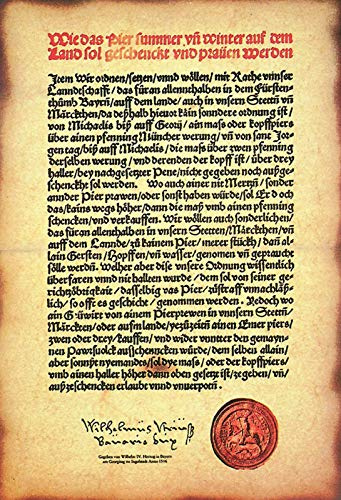 Wie das Pier summer vñ winter auf dem
Land sol geschenckt vnd praüen werden
Item Wir ordnen/setzen/vnnd wöllen/mit Rathe vnnser
Lanndtschafft/das für an allennthalben in dem Fürsten-
thumb Bayrñ/auff dem lande/auch in vnsern Stettñ vñ
Märckthen/da deßhalb hieuor kain sonndere ordnung ist/
von Michaelis biß auff Georij/ain mass oder kopffpiers
über ainen pfenning Müncher werung/vñ von sant Jor-
gentag/biß auff Michaelis/die mass über zwen pfenning
derselben werung/vnd derenden der kopff ist/über drey
haller/bey nachgesetzter Pene/nicht gegeben noch außge-
schenckht sol werden. Wo auch ainer nit Mertzñ/sonder
annder Pier prawen/oder sonst haben würde/sol Er doch
das/kains wegs höher/dann die maß vmb ainen pfenning
schencken/vnd verkauffen. Wir wöllen auch sonderlichen/
das für an allenthalben in vnsern Stetten/Märckthen/vñ
auff dem Lannde/zu kainem Pier/merer stückh/dañ al-
lain Gersten/Hopffen/vñ wasser/genomen vñ gepraucht
sölle werdñ. Welher aber dise vnsere Ordnung wissentlich
überfaren vnnd nit hallten wurde/dem sol von seiner ge-
richtzöbrigkait/dasselbig vas Pier/zustraff vnnachläß-
lich/so offt es geschicht/genommen werden. Jedoch wo
ain Güwirt von ainem Pierprewen in vnnsern Stettñ/
Märckten/oder aufm lande/yezüzeitñ ainen Emer piers/
zwen oder drey/kauffen/vnd wider vnntter den gemayn-
nen Pawrsuolck ausschenncken würde/dem selben allain/
aber sonnst nyemandes/sol dye mass/oder der kopffpiers/
vmb ainen haller höher dann oben gesetzt ist/zegeben/vñ/
außzeschencken erlaubt vnnd vnuerpotñ.
Gegeben von Wilhelm IV. Herzog in Bayern
am Georgitag zu Ingolstadt Anno 1516